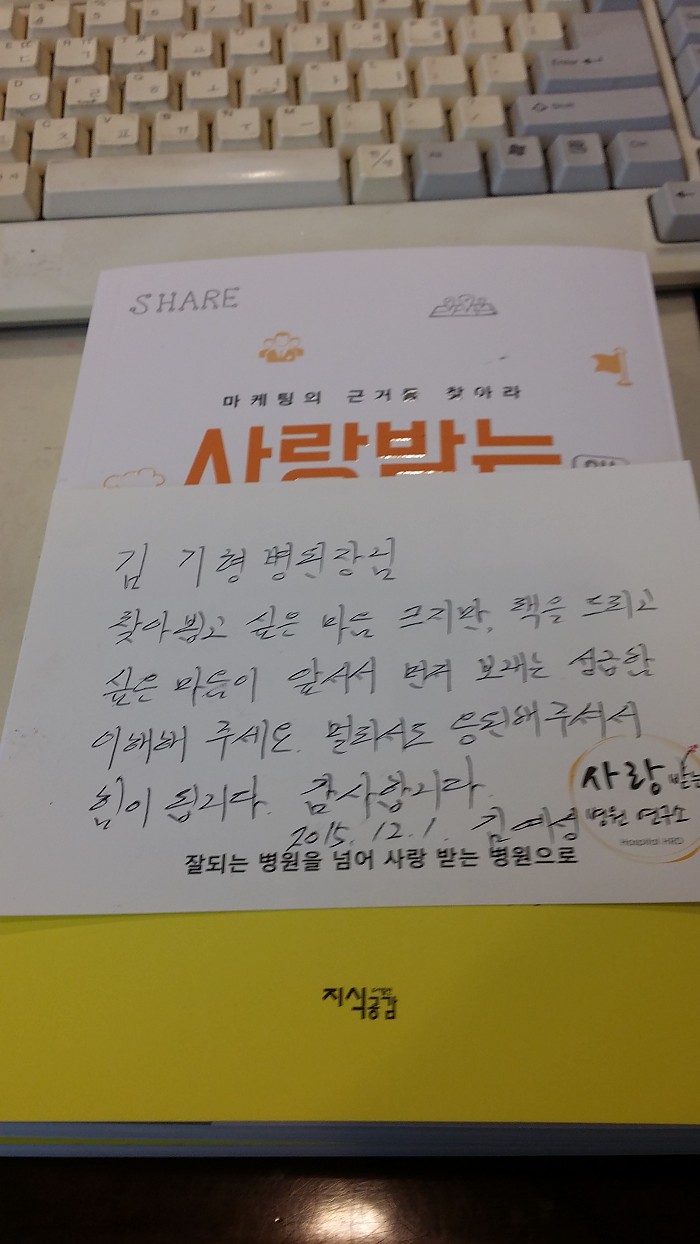 Enter
Shift
한/영
Alt
Ctrl
SHARE
마케팅의 근거를 찾아라
사랑받는
김 기형 병원장님
찾아뵙고 싶은 마음 크지만, 책을 드리고
싶은 마음이 앞서서 먼저 보내는 성급함
이해해 주세요. 멀리서도 응원해주셔서
힘이 됩니다. 감사합니다.
2015. 12. 1. 김
사랑 받는
병원 연구소
Hospital HRD
잘되는 병원을 넘어 사랑 받는 병원으로
지식공감